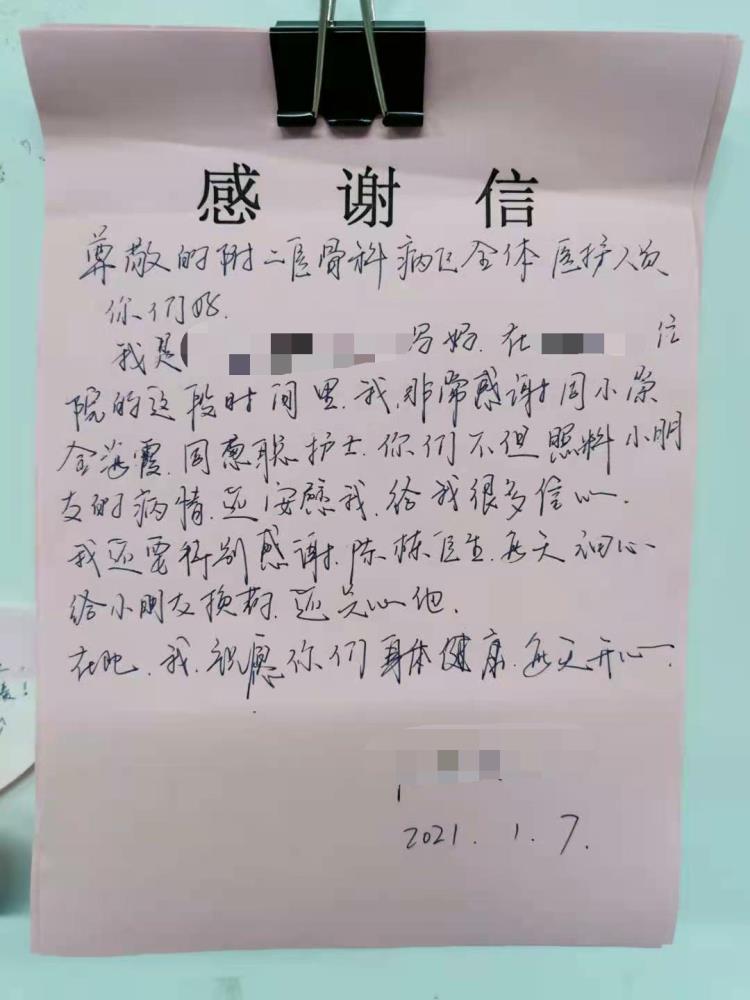 感谢信
尊敬的附二医骨科病区全体医护人员
你们好.
我是 妈妈.在 住
院的这段时间里.我.非常感谢周小荣
金海霞.周惠聪护士.你们不但照料小朋
友的病情.还安慰我.给我很多信心.
我还要特别感谢.陈栋医生.每天细心
给小朋友换药.还关心他.
在此.我.祝愿你们身体健康.每天开心.
2021.1.7.